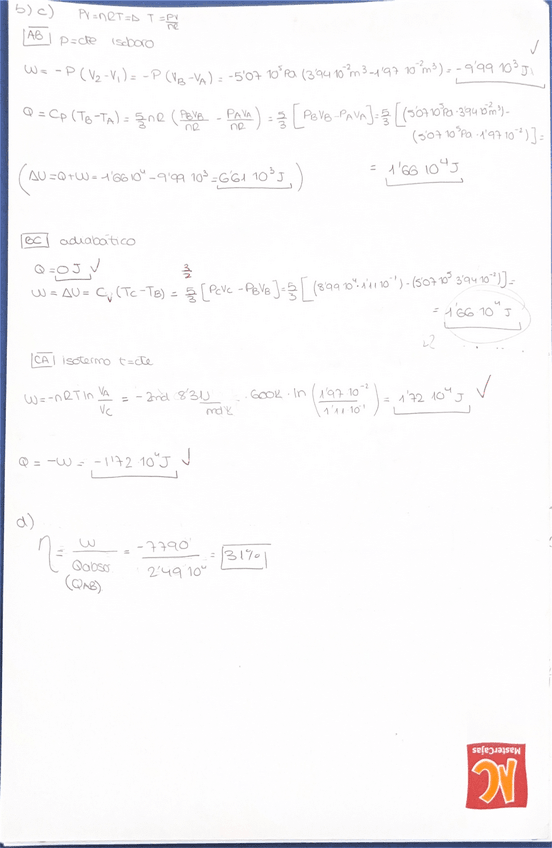 b) c) PV=nRT=D T=PV/nR
AB p=cte isobaro
W = -P (V2-V1) = -P (VB-VA) = -5'07 10⁵Pa (3'94 10⁻²m³ -1'97 10⁻²m³) = -9'99 10³ J ✓
Q = CP (TB-TA) = 5/3 nR (PBVB/nR - PAVA/nR) = 5/3 [PBVB-PAVA] = 5/3 [(5'07 10⁵Pa · 3'94 10⁻²m³) -
(5'07 10⁵Pa · 1'97 10⁻²)] =
= 1'66 10⁴ J
(ΔU = Q+W = 1'66 10⁴ - 9'99 10³ = 6'61 10³ J)
BC adiabático
Q = 0 J ✓
3/2
W = ΔU = CV (TC-TB) = 5/3 [PCVC - PBVB] = 5/3 [(8'99 10⁴ · 1'11 10⁻¹) - (5'07 10⁵ 3'94 10⁻²)] =
= 1'66 10⁴ J
CA isotermo t=cte
W = -nRT ln VA/VC = -2mol 8'31 J/mol·K · 600K · ln (1'97 10⁻²/1'11 10⁻¹) = 1'72 10⁴ J ✓
Q = -W = -1'72 10⁴ J ✓
d)
η = W/Qabsor = -7790/2'49 10⁴ = 31%
(QAB)
AC
MasterCajas